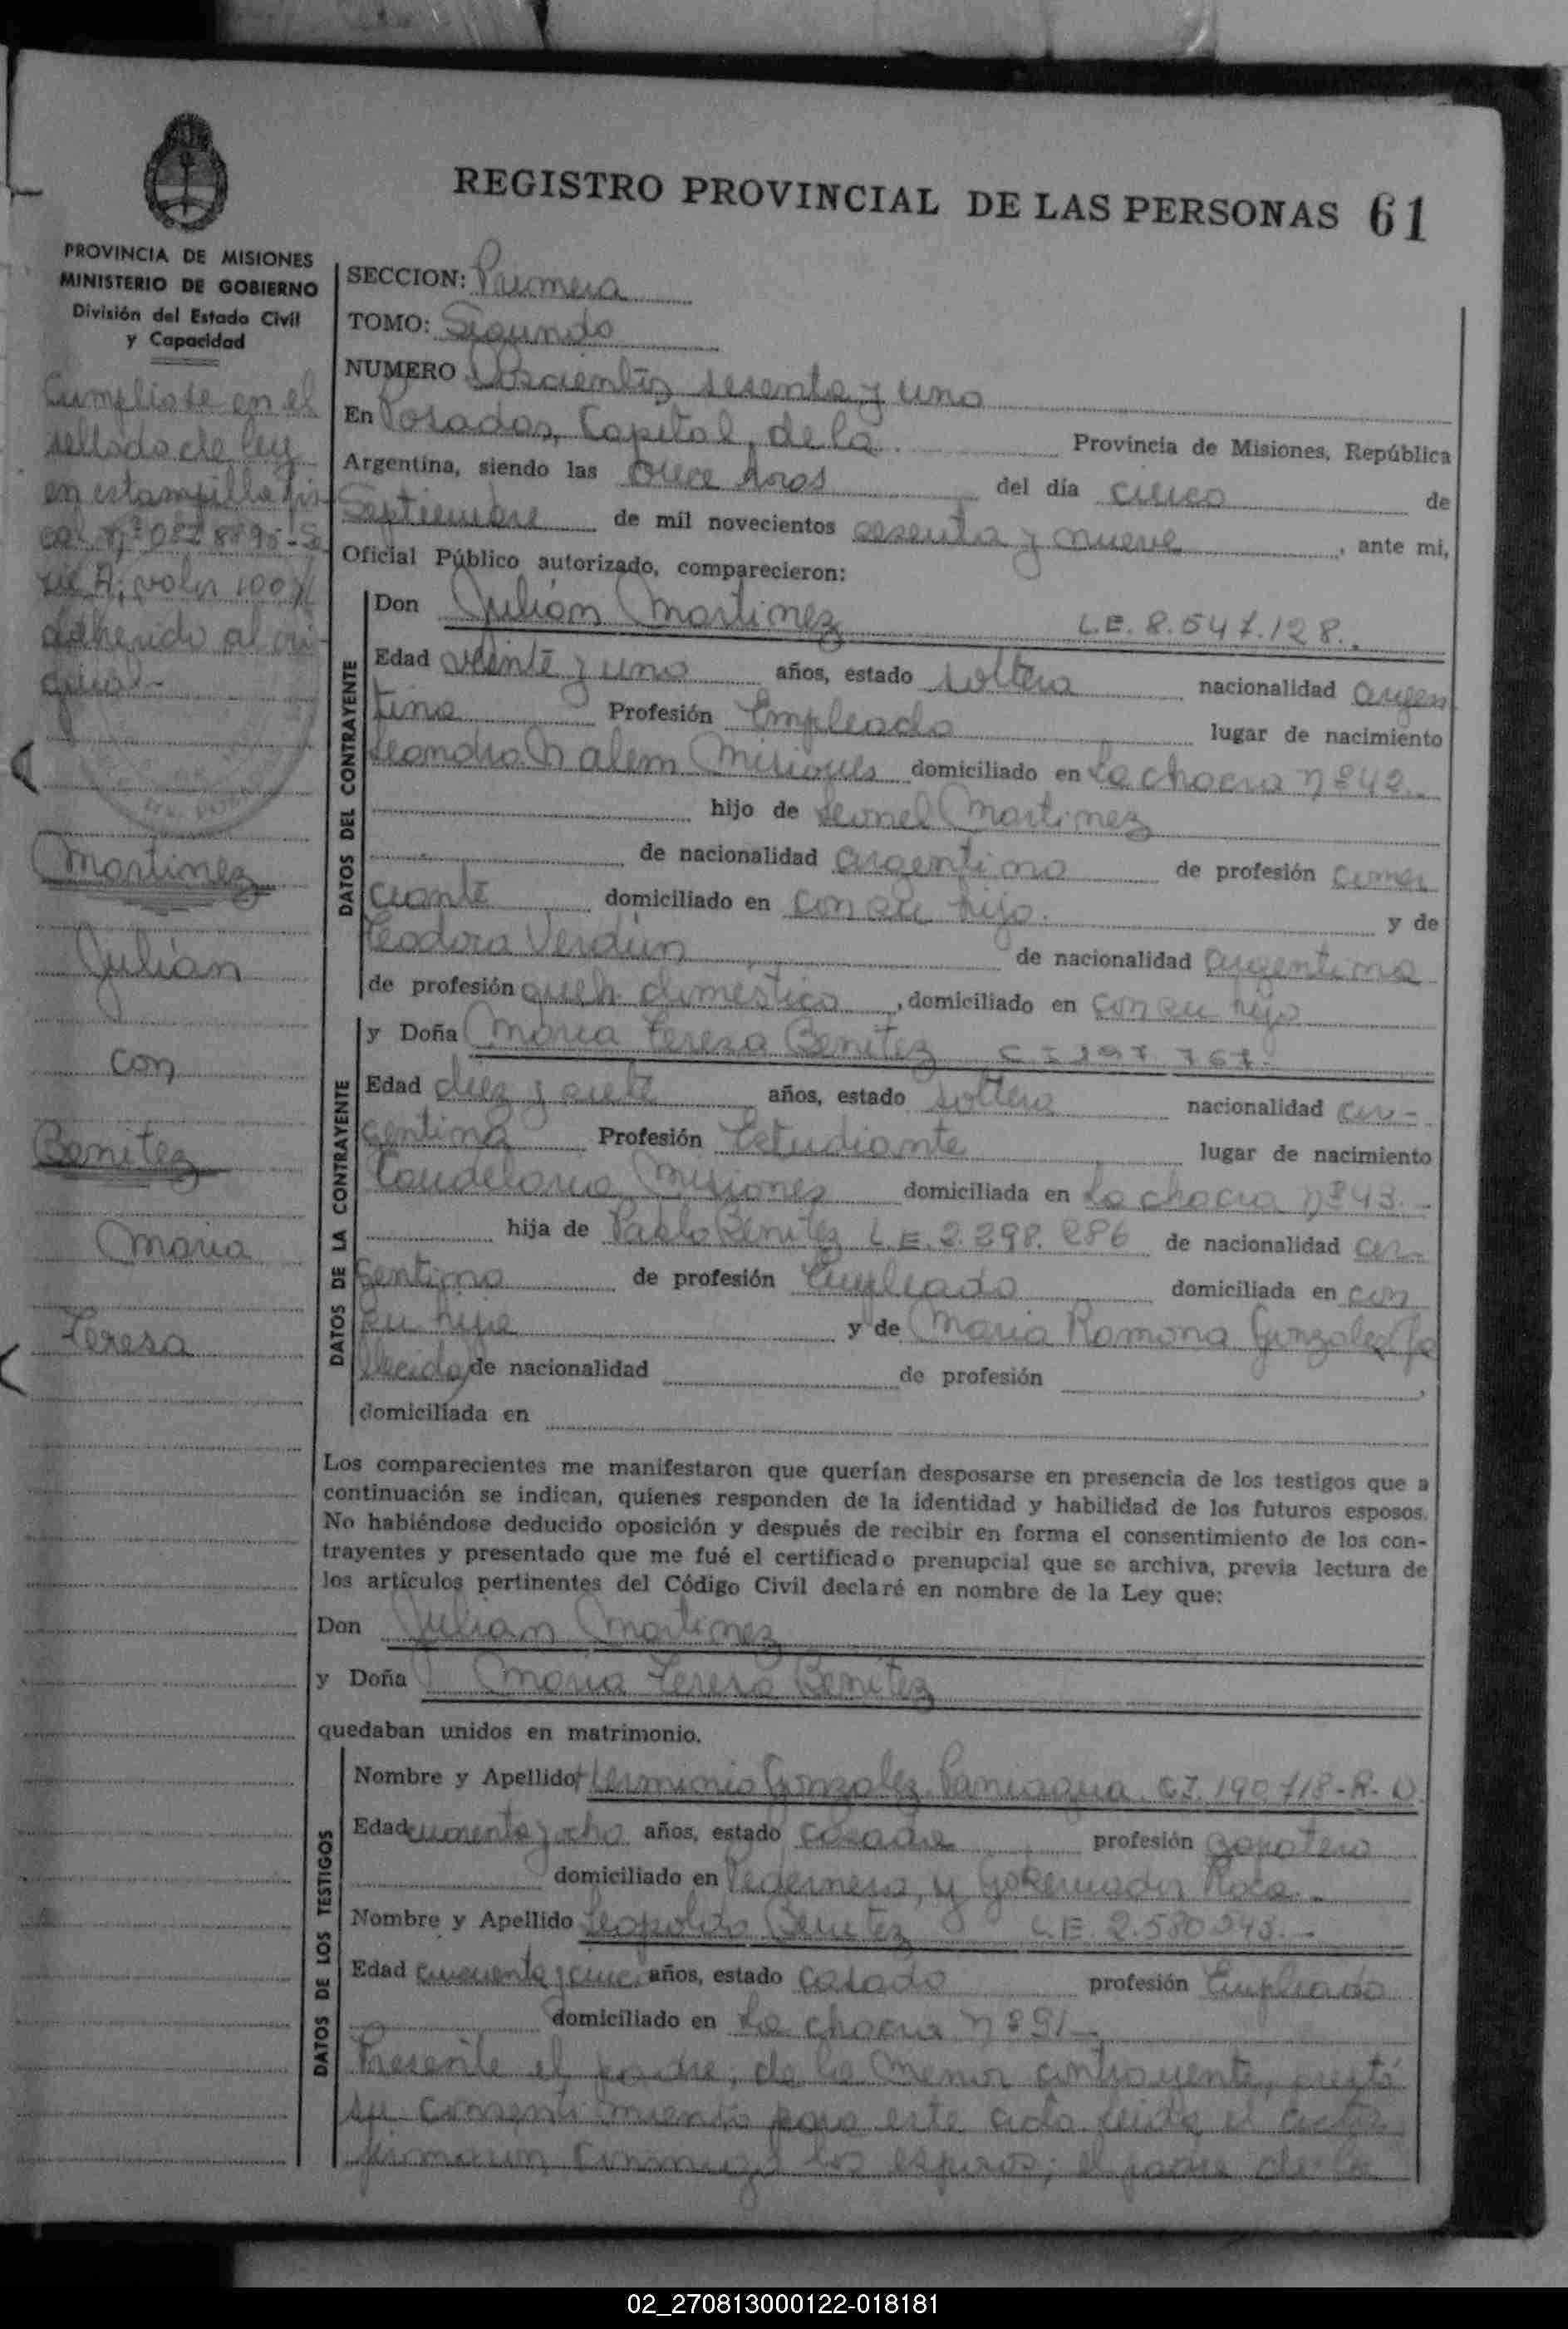 REGISTRO PROVINCIAL DE LAS PERSONAS 61
PROVINCIA DE MISIONES
MINISTERIO DE GOBIERNO
División del Estado Civil
y Capacidad
Cumpliose en el
sellado de ley
en estampilla fis
cal nº
valor 100
adherido al ori-
ginal-
Martinez
Julián
con
Benitez
Maria
Teresa
SECCION: Primera
TOMO: Segundo
NUMERO Doscientos sesenta y uno
En Posadas, Capital, de la Provincia de Misiones, República
Argentina, siendo las once horas del día cinco de
Septiembre de mil novecientos sesenta y nueve, ante mi,
Oficial Público autorizado, comparecieron:
DATOS DEL CONTRAYENTE
Don Julián Martinez L.E. 8.547.128.
Edad veinte y uno años, estado soltero nacionalidad argen
tino Profesión Empleado lugar de nacimiento
Leandro N alem Misiones domiciliado en La chacra nº 42.
hijo de Leonel Martinez
de nacionalidad argentino de profesión comer
ciante domiciliado en con su hijo. y de
Teodora Verdún de nacionalidad argentina
de profesión queh domestico, domiciliado en con su hijo
DATOS DE LA CONTRAYENTE
y Doña Maria Teresa Benitez C I 197 767.
Edad diez y siete años, estado soltera nacionalidad ar-
gentina Profesión Estudiante lugar de nacimiento
Candelaria Misiones domiciliada en La chacra nº 43.-
hija de Pablo Benitez L.E. 2.398.286 de nacionalidad ar-
gentino de profesión Empleado domiciliada en con
su hija y de Maria Ramona Gonzalez (fa
llecida) de nacionalidad de profesión ,
domiciliada en
Los comparecientes me manifestaron que querían desposarse en presencia de los testigos que a
continuación se indican, quienes responden de la identidad y habilidad de los futuros esposos.
No habiéndose deducido oposición y después de recibir en forma el consentimiento de los con-
trayentes y presentado que me fué el certificado prenupcial que se archiva, previa lectura de
los artículos pertinentes del Código Civil declaré en nombre de la Ley que:
Don Julian Martinez
y Doña Maria Teresa Benitez
quedaban unidos en matrimonio.
DATOS DE LOS TESTIGOS
Nombre y Apellido Herminio Gonzalez Paniagua C.I. 190718-R-D.
Edad cuarenta y ocho años, estado casado profesión zapatero
domiciliado en Pedernera, y Gobernador Roca.-
Nombre y Apellido Leopoldo Benitez L.E. 2.580
Edad cincuenta y cinco años, estado casado profesión Empleado
domiciliado en La chacra nº 91-
Presente el padre, de la menor contrayente, prestó
su consentimiento para este acto. Leida el acta
firmaron conmigo los esposos; el padre de la
02_270813000122-018181